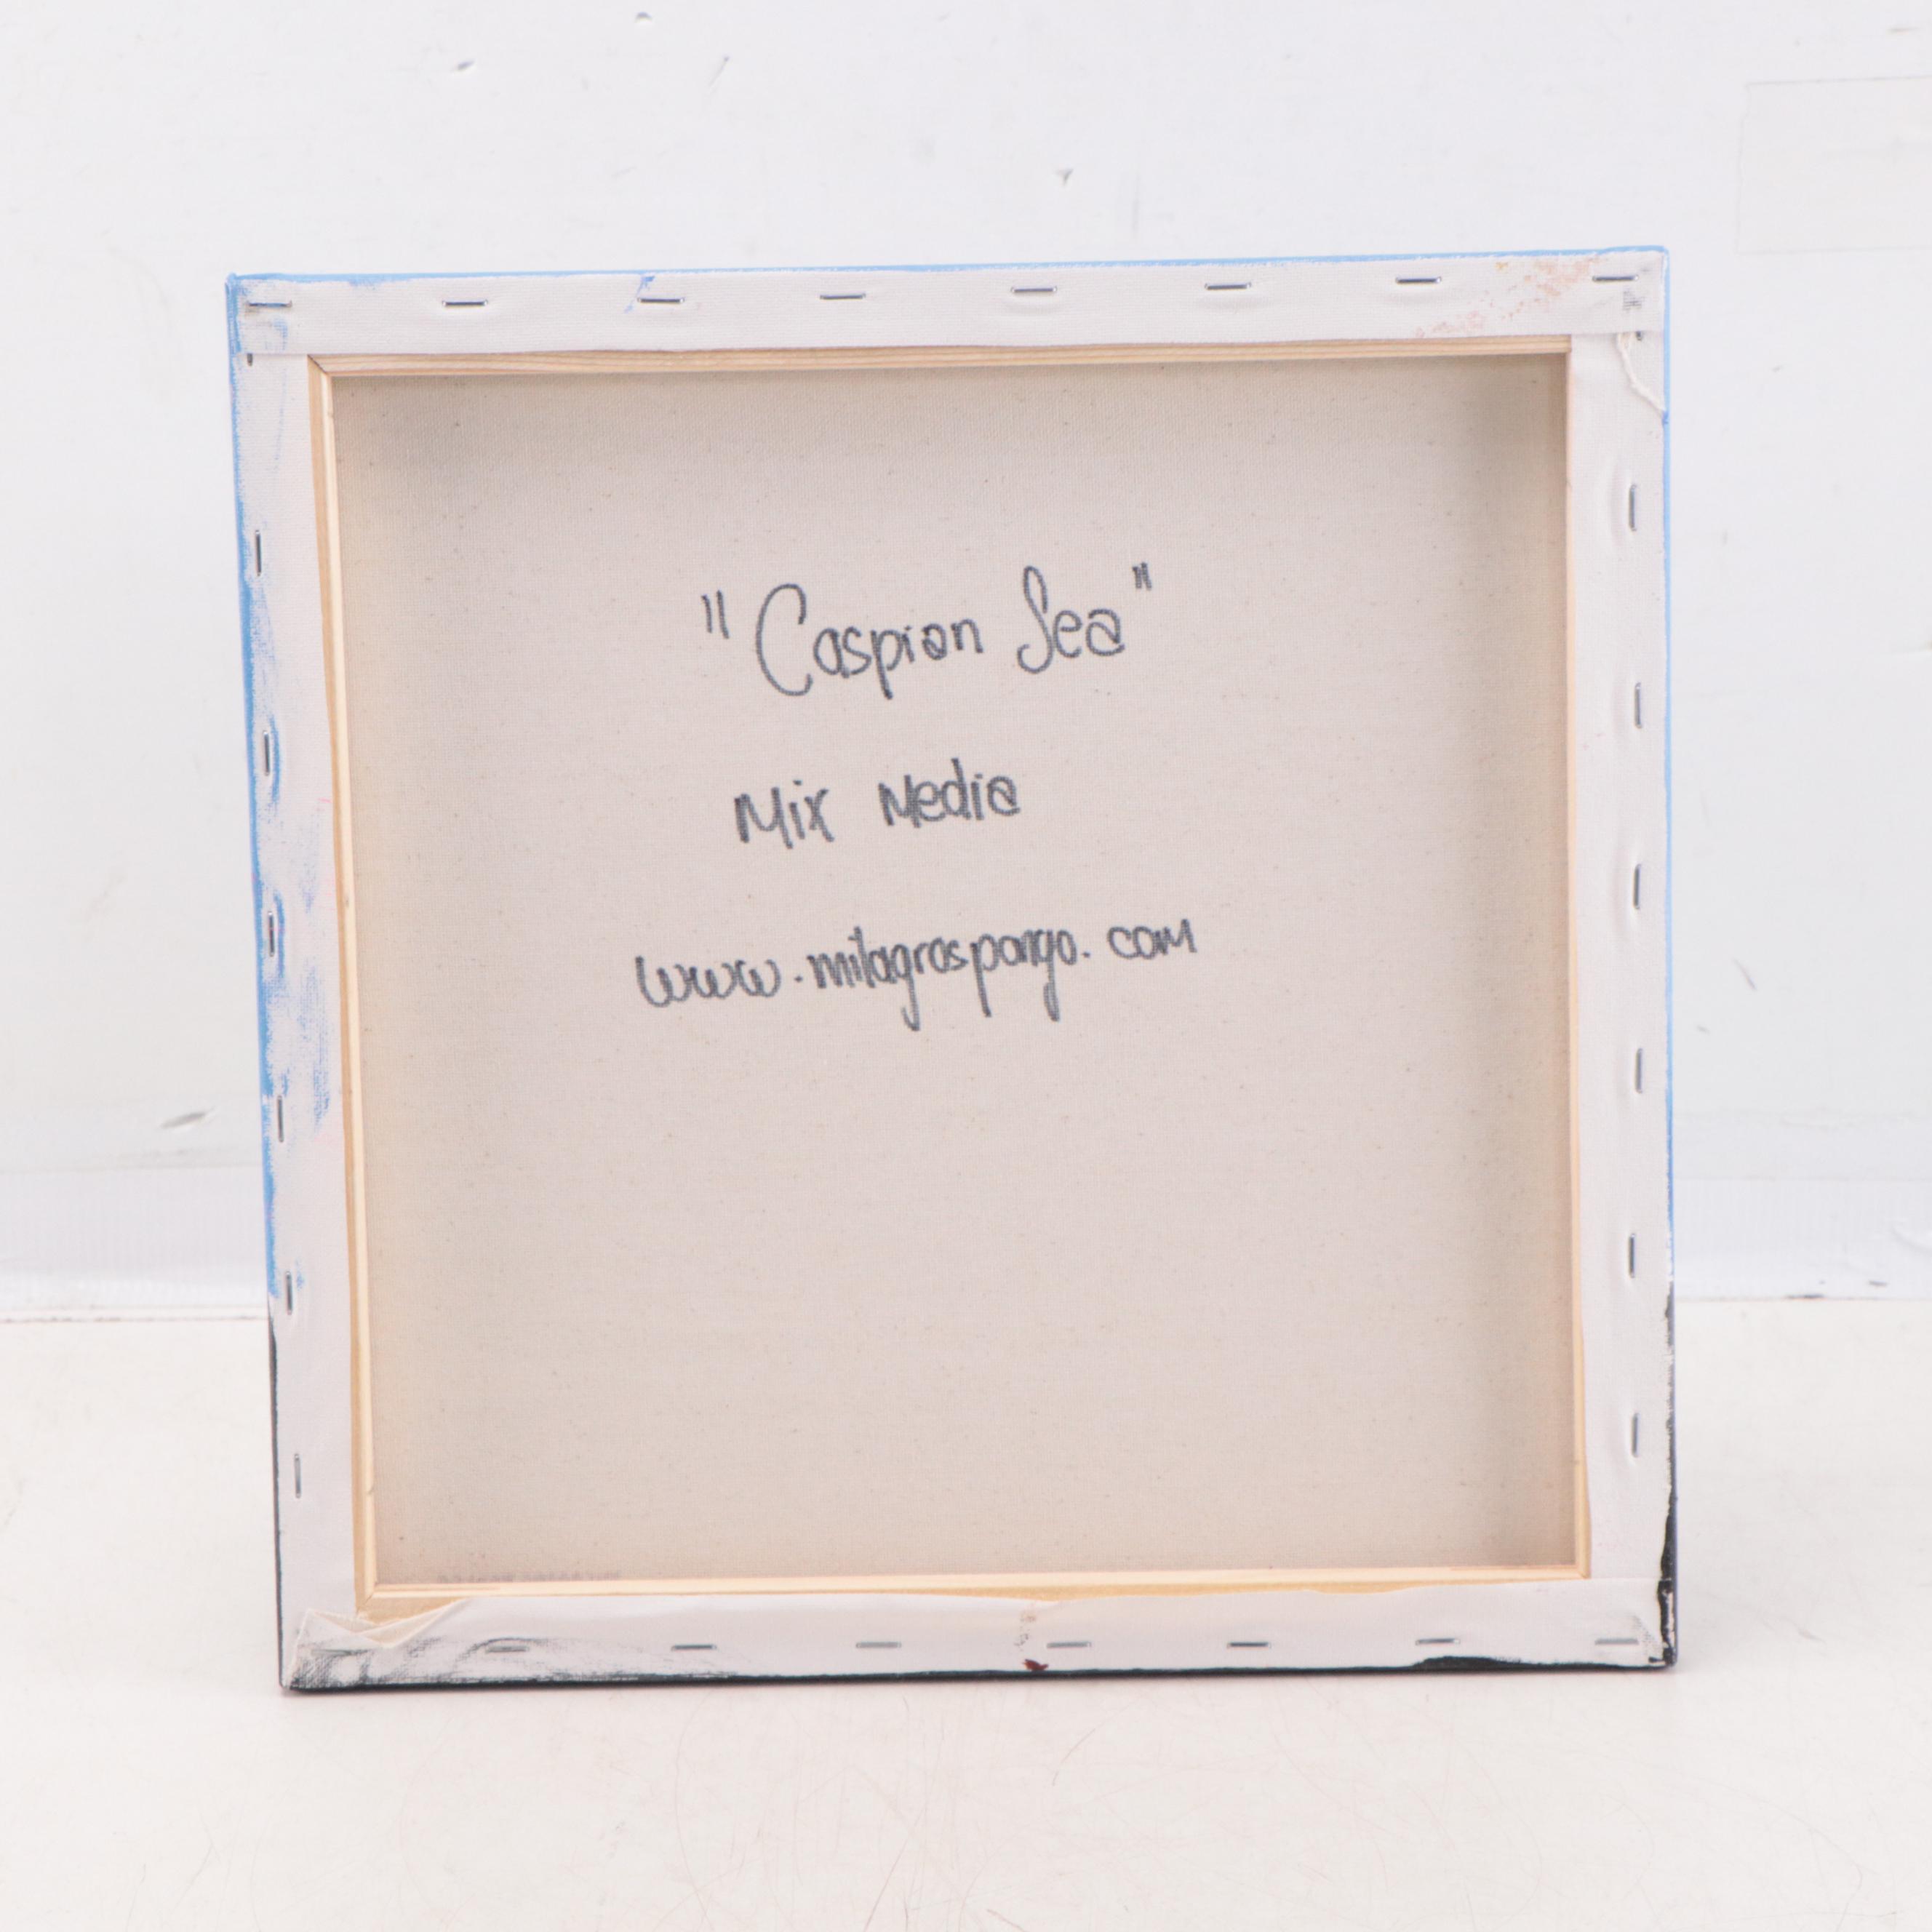 "Caspian Sea"
Mix Media
www.milagrospongo.com